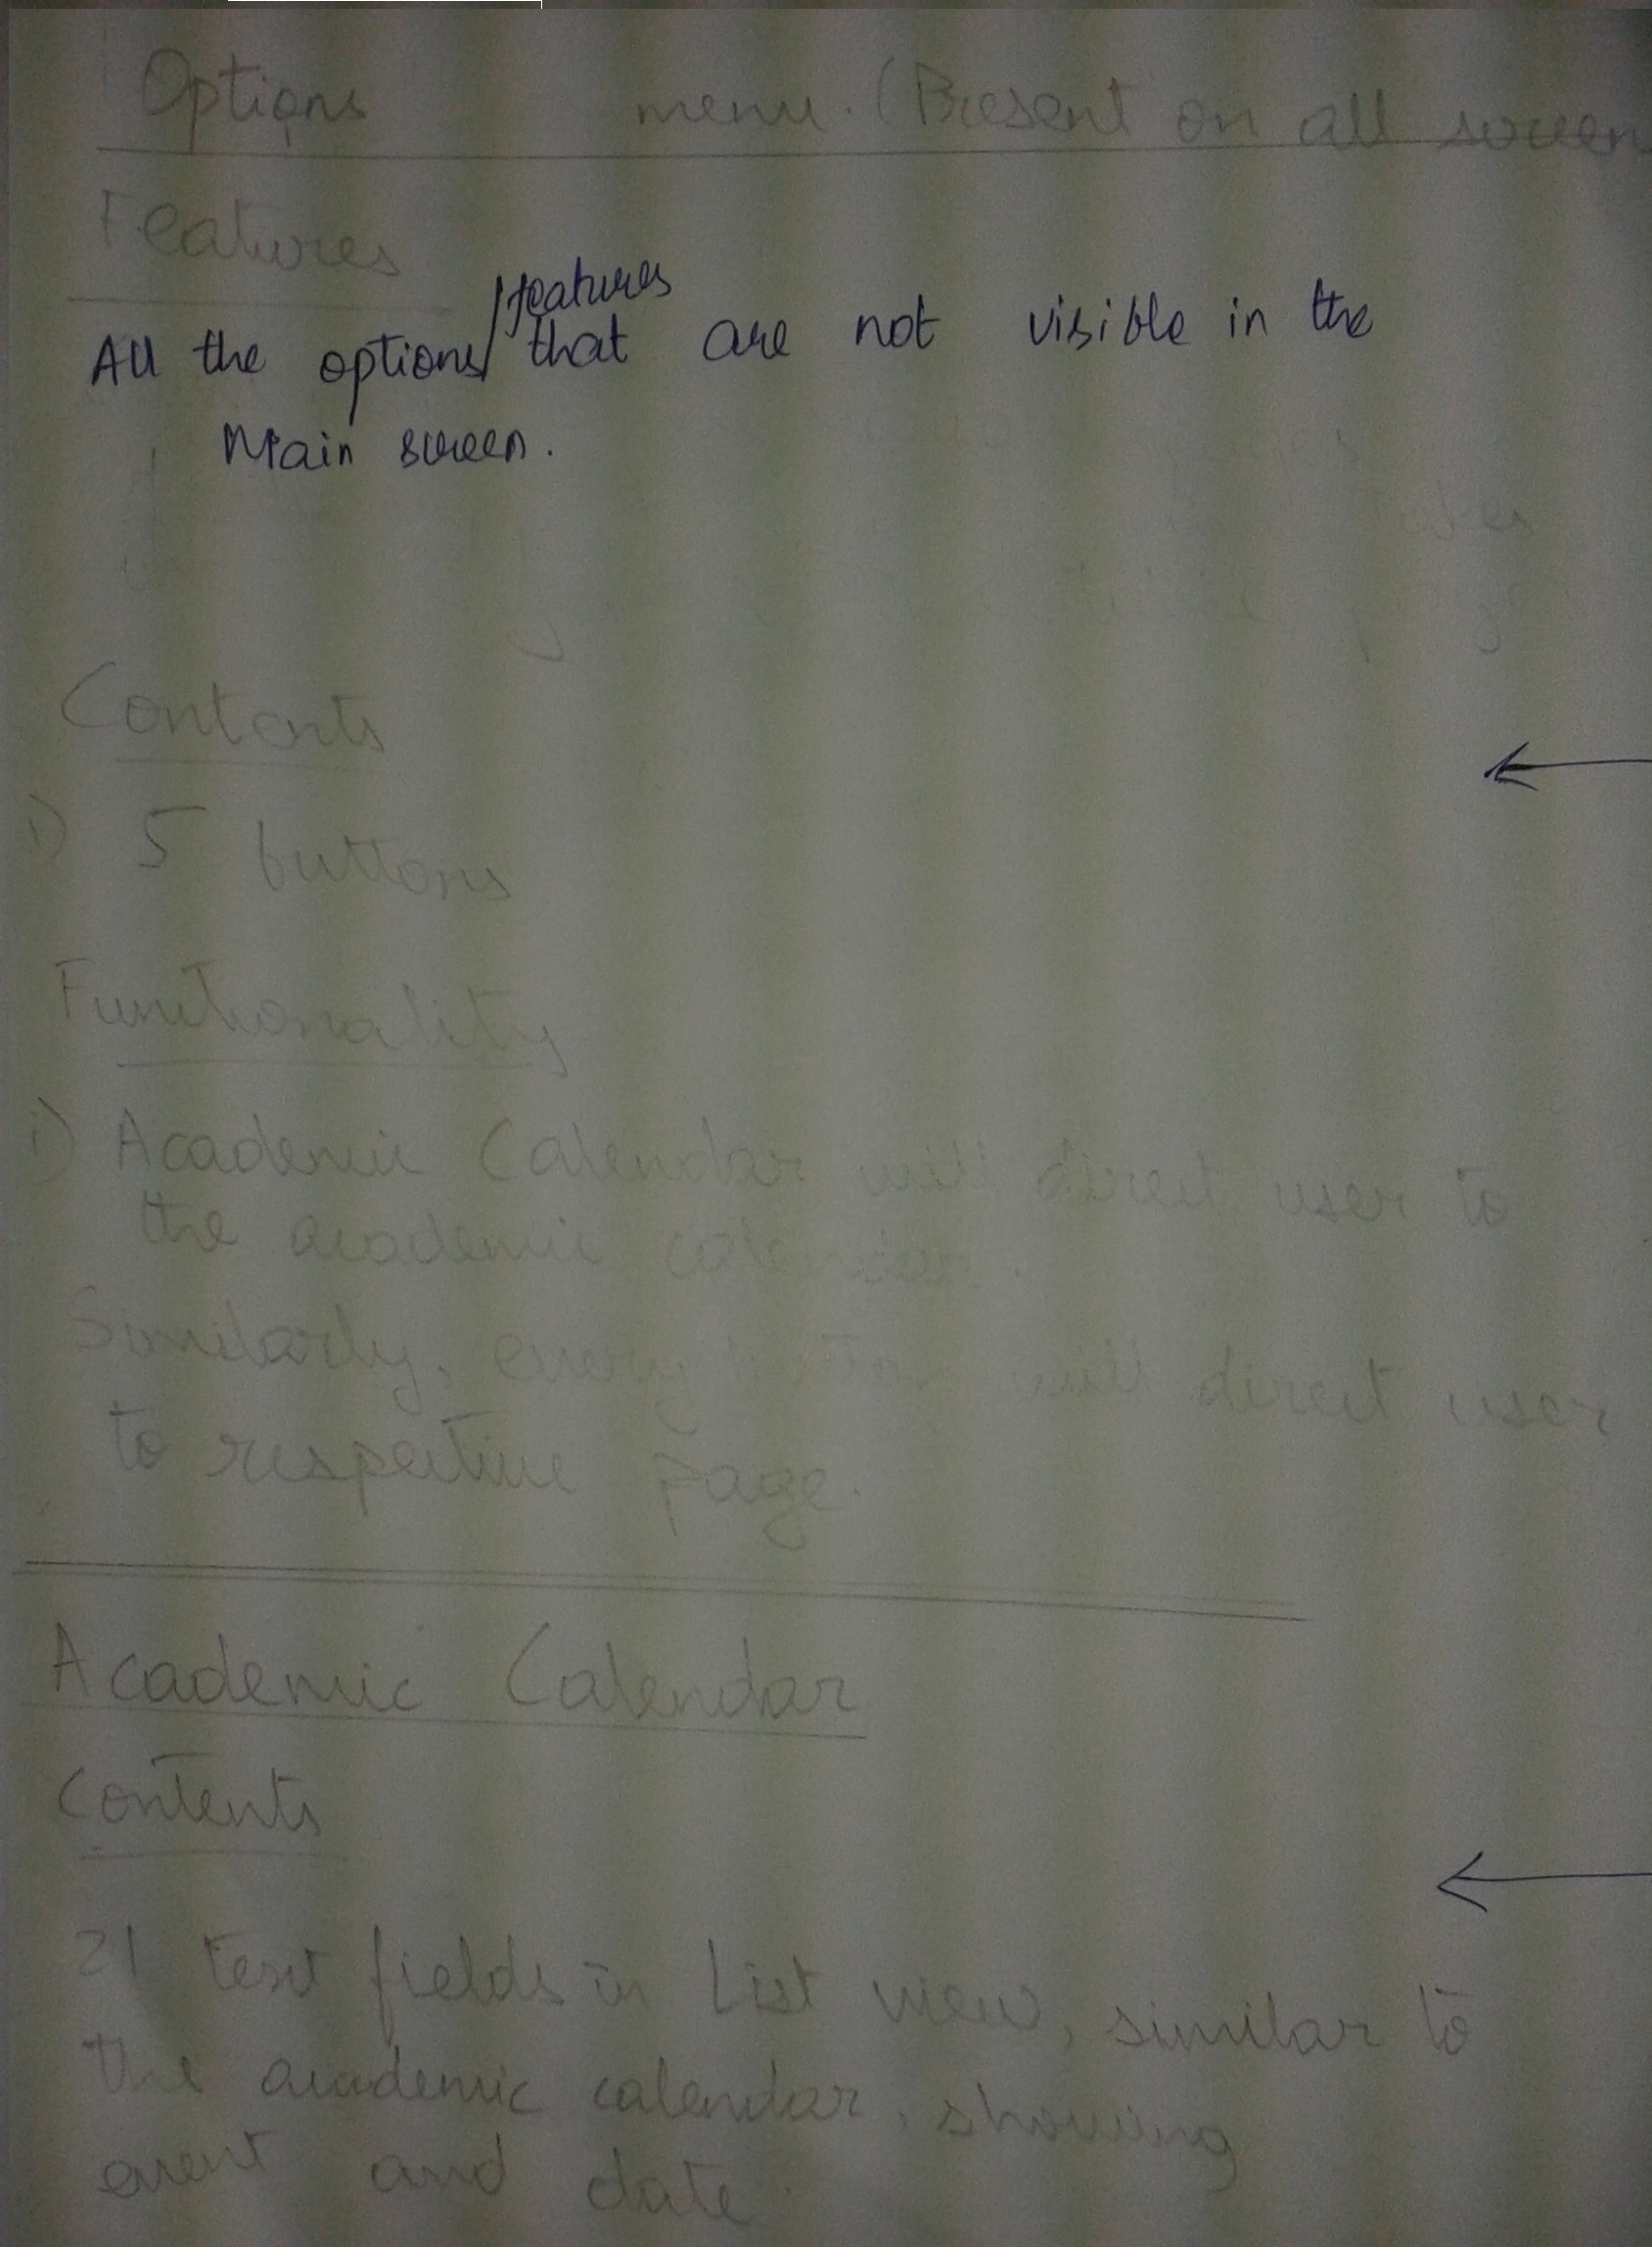 Options menu. (Present on all screen
Features
All the options/features that are not visible in the
Main screen.
Contents
1) 5 buttons
Functionality
i) Academic Calendar will direct user to
the academic calendar.
Similarly, every button will direct user
to respective page.
Academic Calendar
Contents
21 text fields in List view, similar to
the academic calendar, showing
event and date.